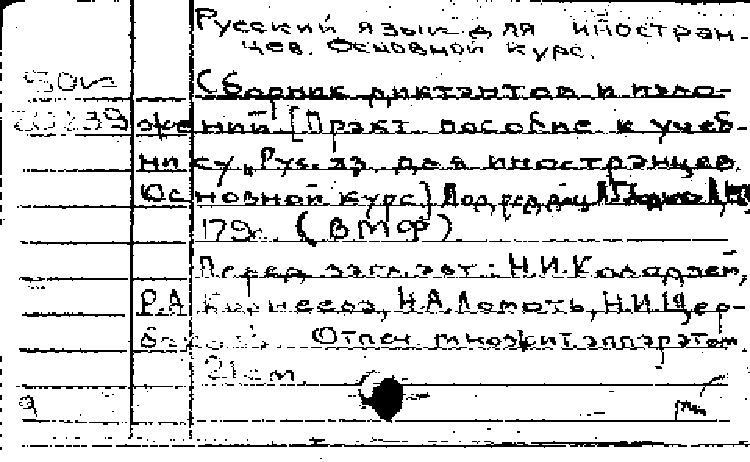 Русский язык для иностран-
цев. Основной курс.
Сборник диктантов и изло-
239 жений [Практ. пособие к учеб-
нику „Рус. яз. для иностранцев.
Основной курс] Под ред. доц.
179с. (ВМФ)
Перед загл. авт.: Н.И. Колодзей,
Р.А. Корнеева, Н.А. Лопоть, Н.И. Щер-
Отпеч. множит. аппаратом.
21 см.